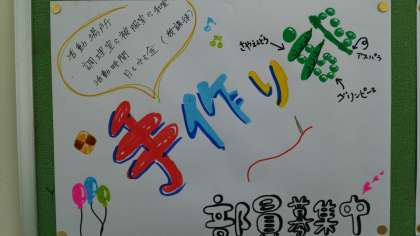 活動場所
・調理室と被服室と和室
活動時間
月と火と金（放課後）
さやえんどう
アスパラ
グリンピース
手作り菜
部員募集中